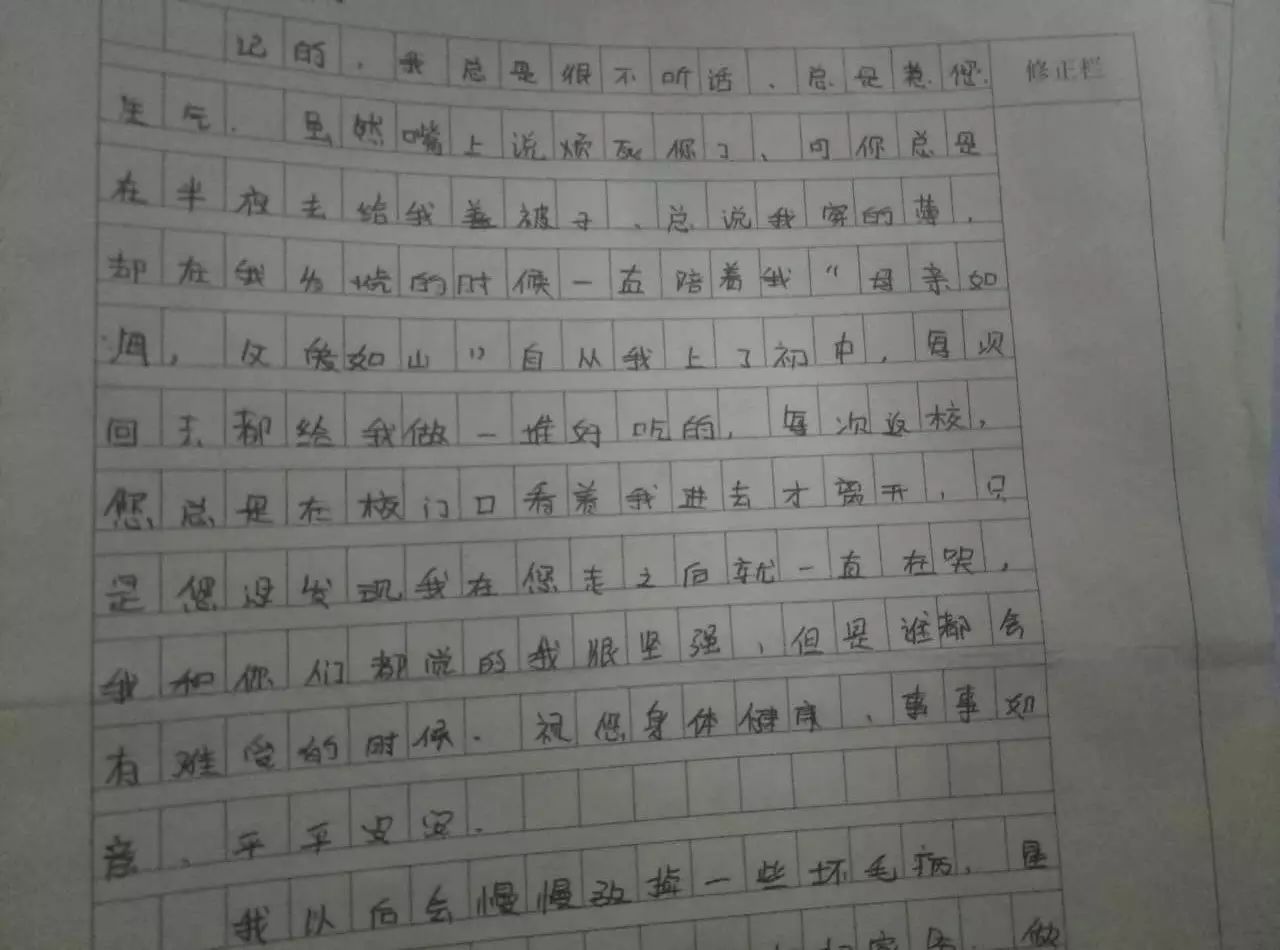 记的，我总是很不听话，总是惹您 修正栏
生气。虽然嘴上说烦死你了，可你总是
在半夜去给我盖被子，总说我穿的薄，
却在我发烧的时候一直陪着我“母亲如
海，父爱如山”自从我上了初中，每次
回去都给我做一堆好吃的，每次返校，
您总是在校门口看着我进去才离开，只
是您没发现我在您走之后就一直在哭，
我和你们都说的我很坚强，但是谁都会
有难受的时候。祝您身体健康，事事如
意，平平安安。
我以后会慢慢改掉一些坏毛病，
做